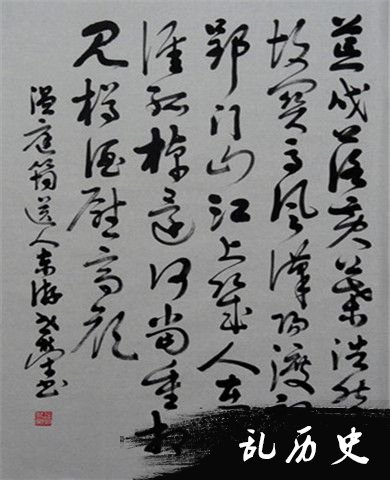 荒戍落黄葉浩然
故関高风漢阳渡初
郢门山江上几人在
涯孤棹还何当重相
见樽酒慰离颜
温庭筠送人东游 书
乱历史